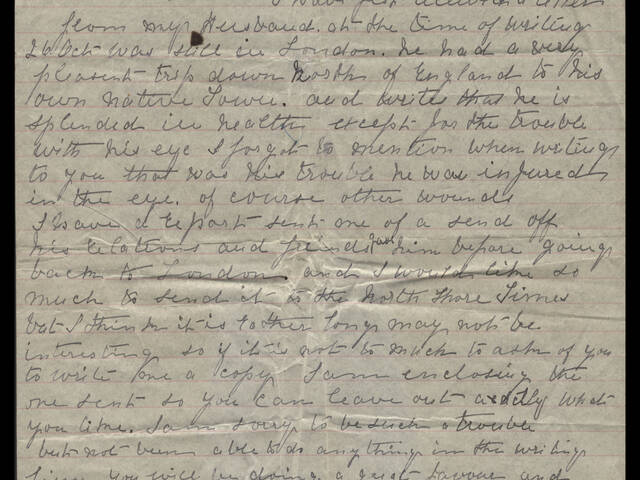 I have just received a letter
from my Husband. at the time of writing
26 Oct was still in London. he had a very
pleasent trip down North of England to his
own native Town. and writes that he is
splended in health except for the trouble
with his eye I forgot to mention when writing
to you that was his trouble he was injured
in the eye. of course other wounds
I have a report sent me of a send off
his relations and friends gave him before going
back to London. and I would like so
much to send it to the North Shore Times
but I think it is rather long may not be
interesting so if it is not to much to ask of you
to write me a copy I am enclosing the
one sent so you can leave out exactly what
you like. I am sorry to be such a trouble
but not been able to do anything in the writing
line you will be doing a great favour and